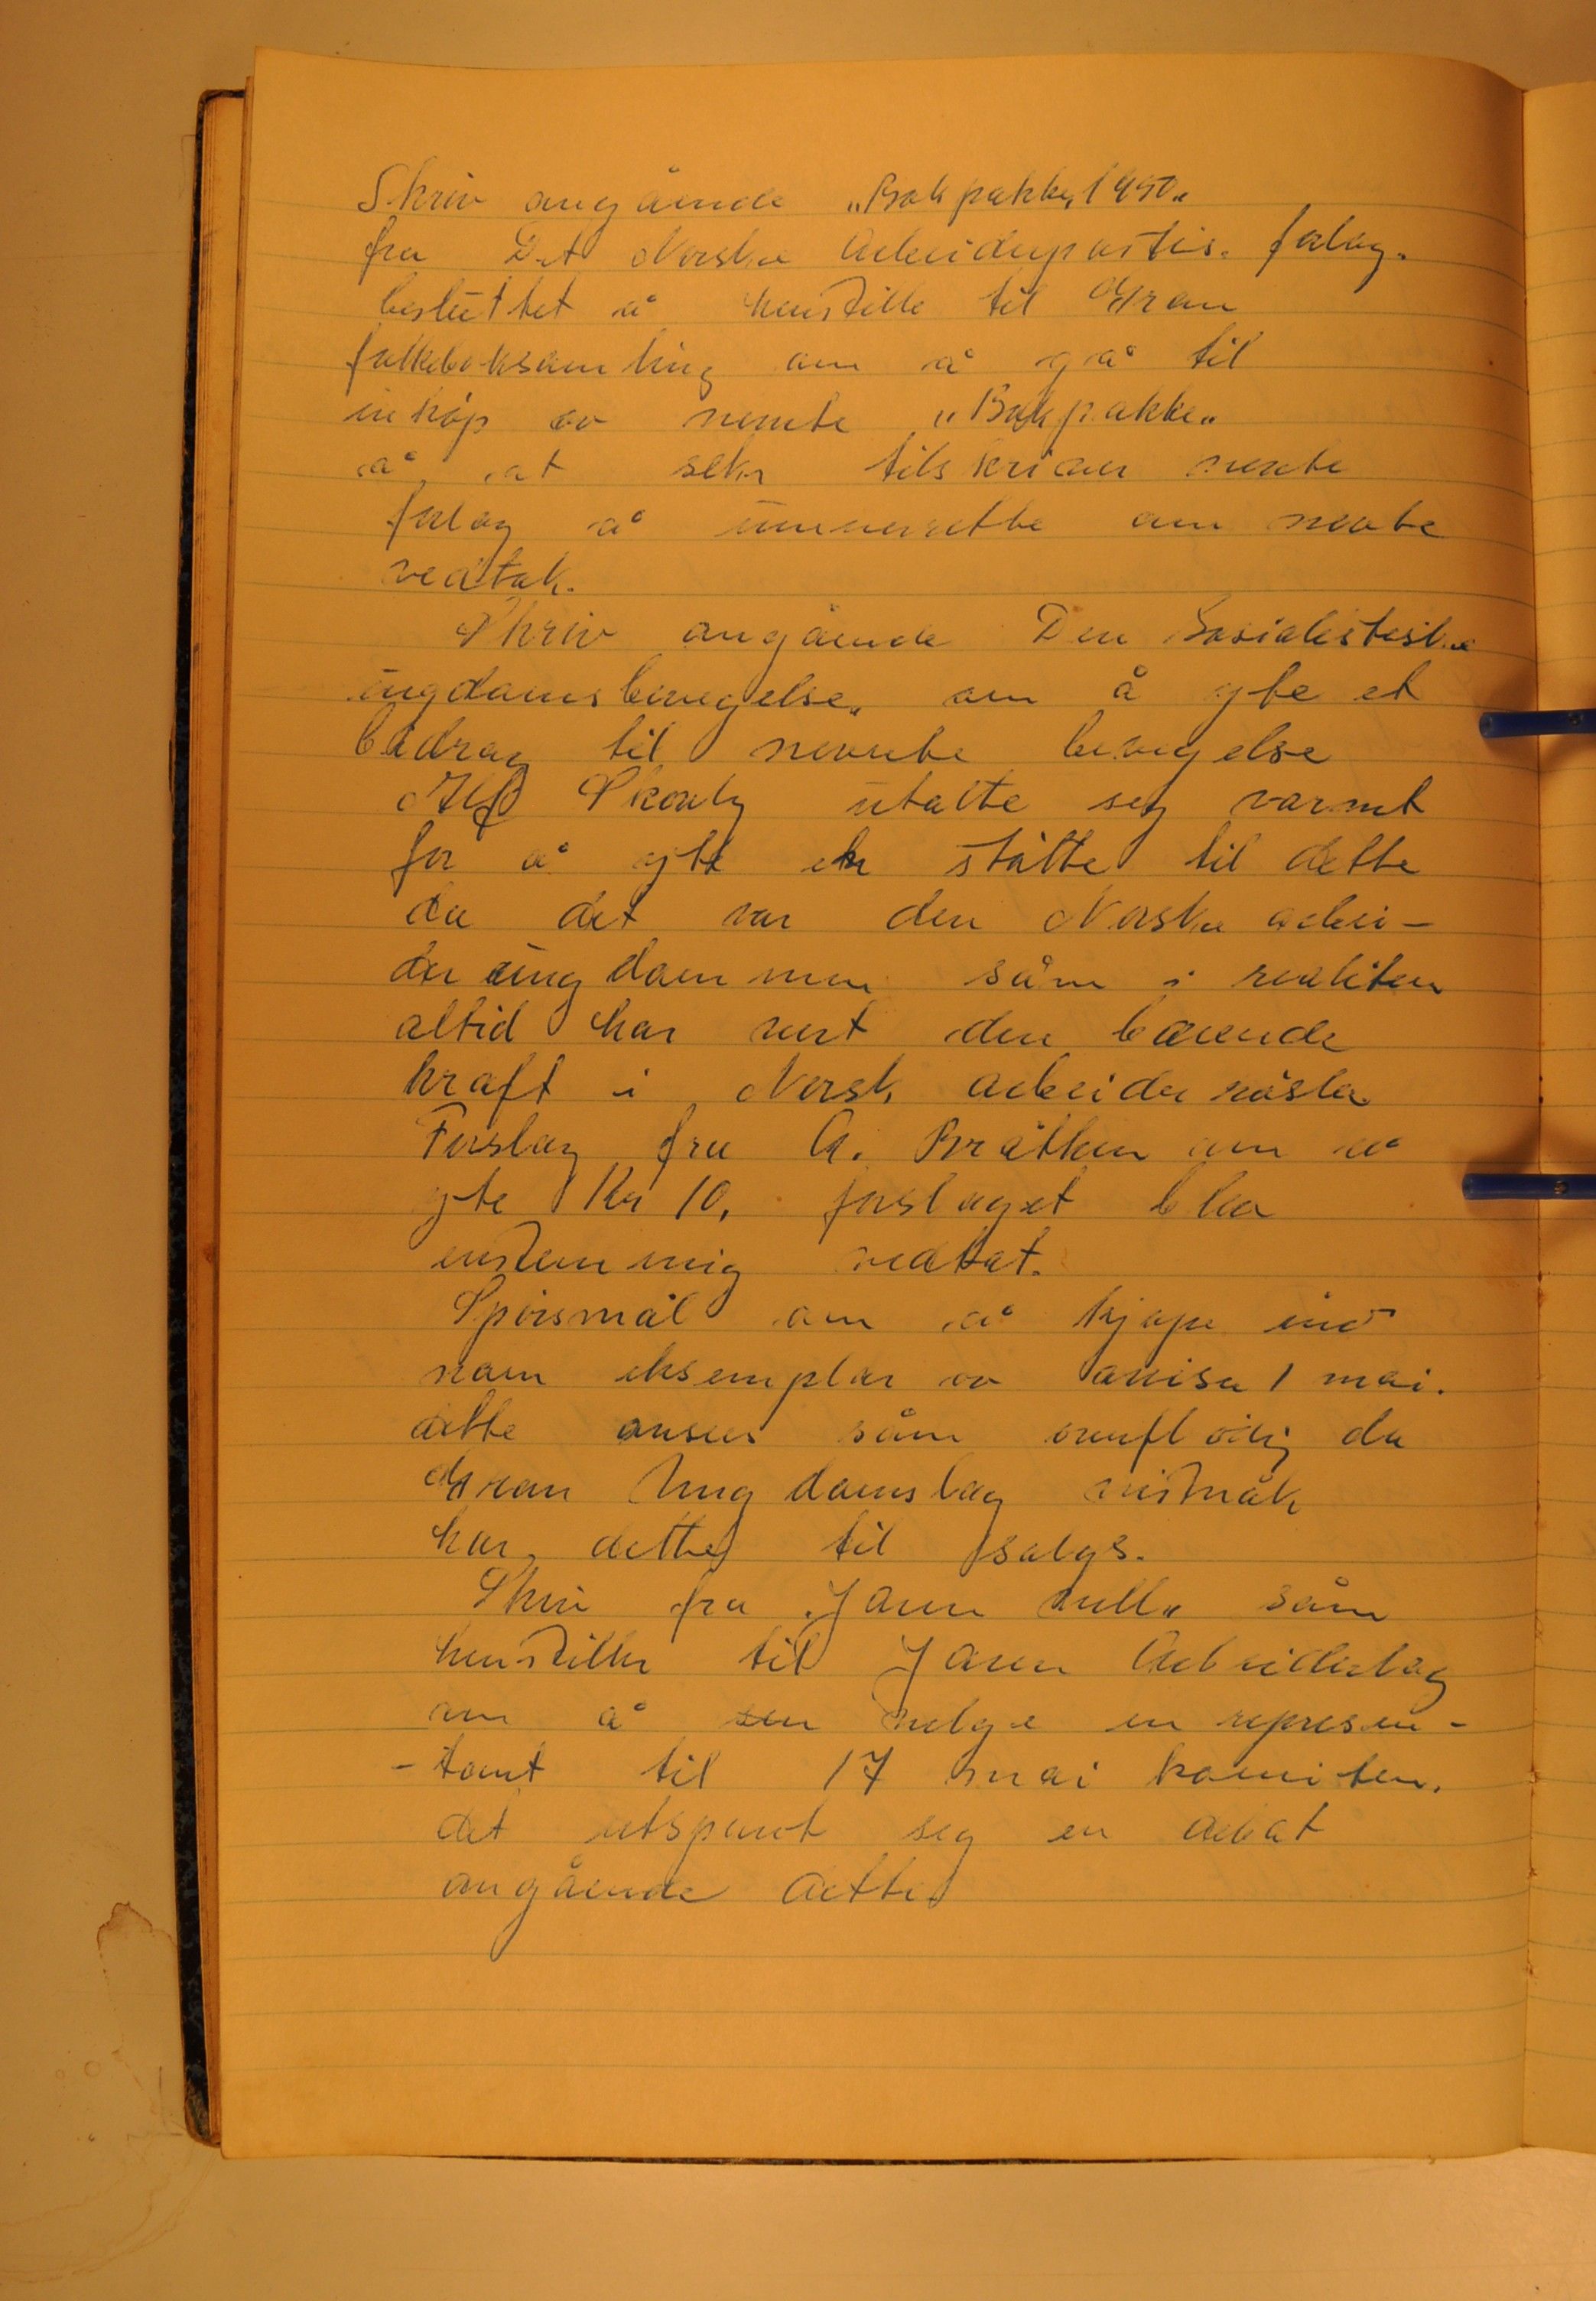 Skriv angående „Bokpakke 1950„
fra Det Norske Arbeiderpartis. forlag.
besluttet å henstille til Gran
folkeboksamling om å gå til
inkjøp av nemte „Bokpakke„
å at sekr tilskriver nemte
forlag å underrette om nemte
vedtak.
Skriv angående Den Sosialistiske
ungdomsbevegelse„ om å yte et
bidrag til nevnte bevegelse
Alf utalte seg varmt
for å yte en støtte til dette
da det var den Norske arbei-
der ungdommen såm i realiten
altid har vert den bærende
kraft i Norsk arbeider
Forslag fra A. Bråthen om å
yte Kr 10, forslaget blev
enstemmig vedtat.
Spørsmål om å kjøpe ind
noen eksemplar av avisa 1 mai.
dette ansees såm overflødig da
Gran Ungdomslag
har dette til salgs.
Skriv fra Jaren såm
henstiller til Jaren Arbeiderlag
om å velge en represen-
-tant til 17 mai komiten.
det utspant seg en debat
angående dette